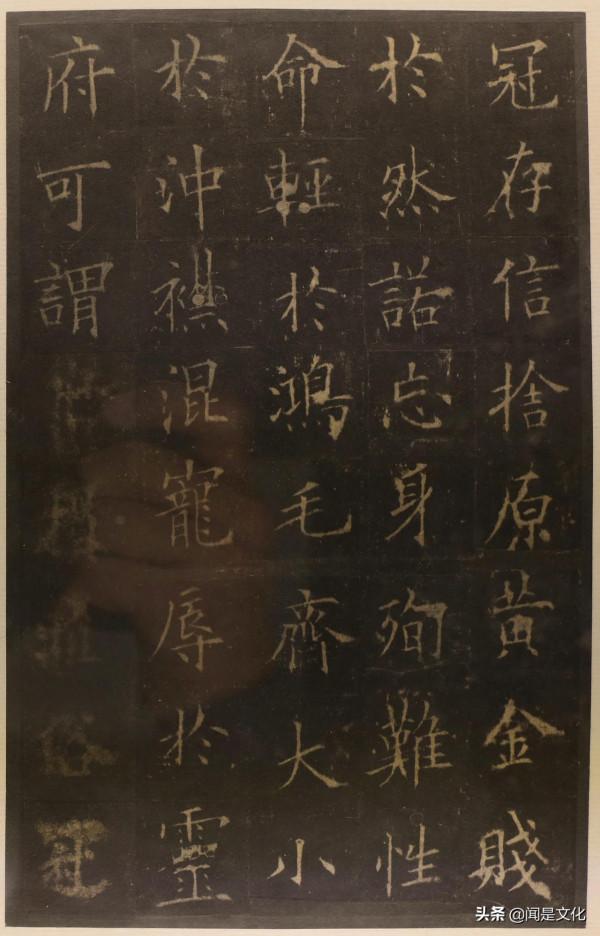 冠存信捨原黄金賤
於然諾忘身殉難性
命輕於鴻毛齊大小
於沖襟混寵辱於靈
府可謂
头条 @闻是文化